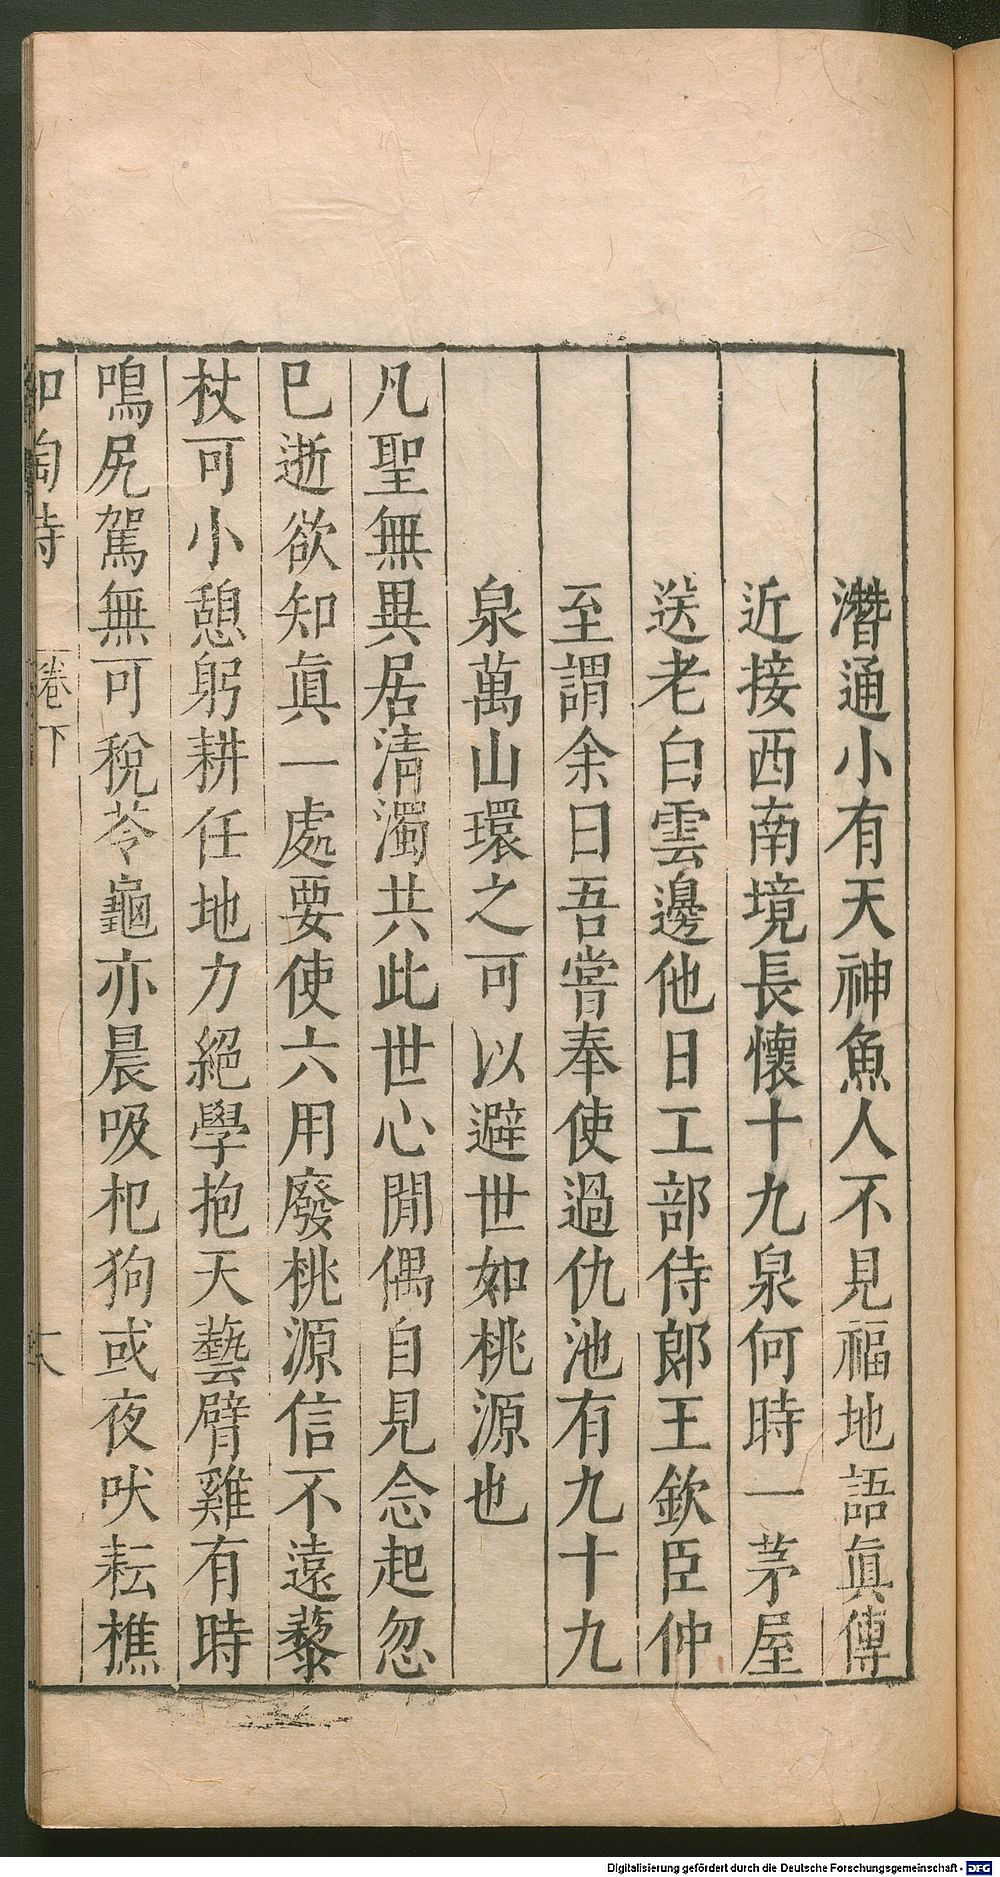 濳通小有天神魚人不見福地語眞傳
近接西南境長懷十九泉何時一茅屋
送老白雲邊他日工部侍郎王欽臣仲
至謂余曰吾嘗奉使過仇池有九十九
泉萬山環之可以避世如桃源也
凡聖無異居清濁共此世心閒偶自見念起忽
已逝欲知眞一處要使六用廢桃源信不遠藜
杖可小憩躬耕任地力絕學抱天藝臂雞有時
鳴尻駕無可稅苓龜亦晨吸杞狗或夜吠耘樵
和陶詩 卷下
Digitalisierung gefördert durch die Deutsche Forschungsgemeinschaft - DFG